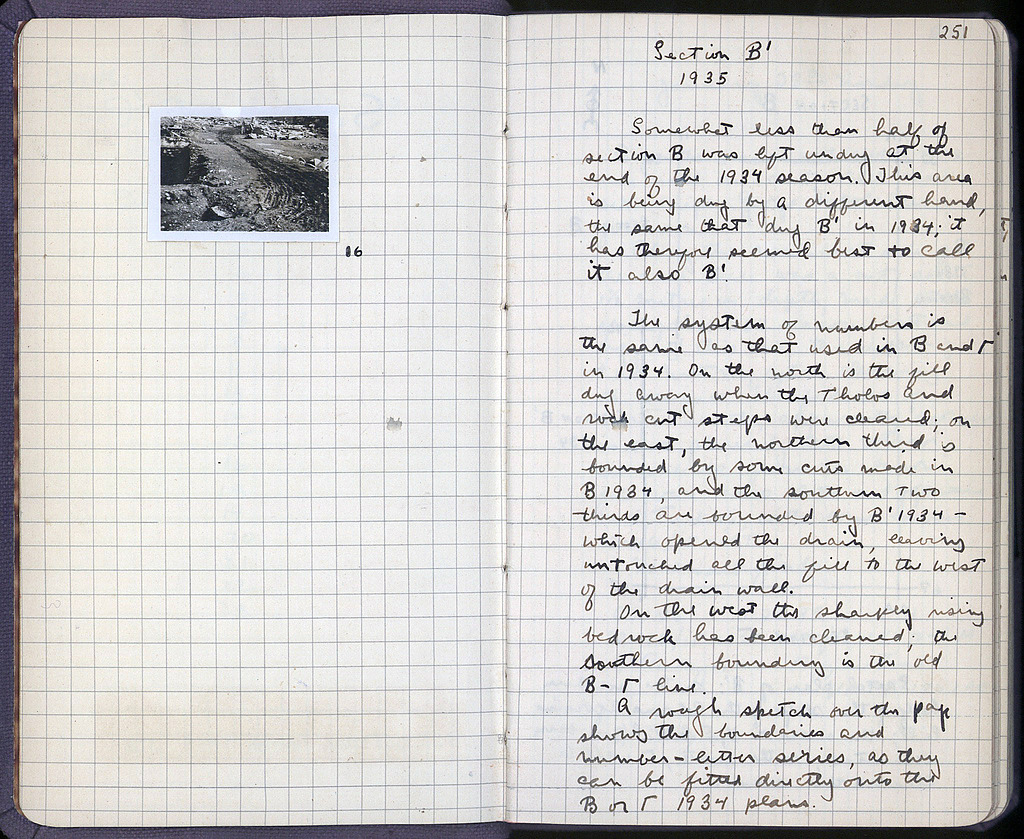 16
251
Section B'
1935
Somewhat less than half of
section B was left undug at the
end of the 1934 season. This area
is being dug by a different hand,
the same that dug B' in 1934; it
has therefore seemed best to call
it also B'.
The system of numbers is
the same as that used in B and Γ
in 1934. On the north is the fill
dug away when the Tholos and
rock cut steps were cleared; on
the east, the northern third is
bounded by some cuts made in
B 1934, and the southern Two
thirds are bounded by B' 1934 –
which opened the drain, leaving
untouched all the fill to the west
of the drain wall.
On the west the sharply rising
bedrock has been cleared; the
southern boundary is the old
B – Γ line.
A rough sketch over the page
shows the boundaries and
number–letter series, as they
can be fitted directly onto the
B or Γ 1934 plans.